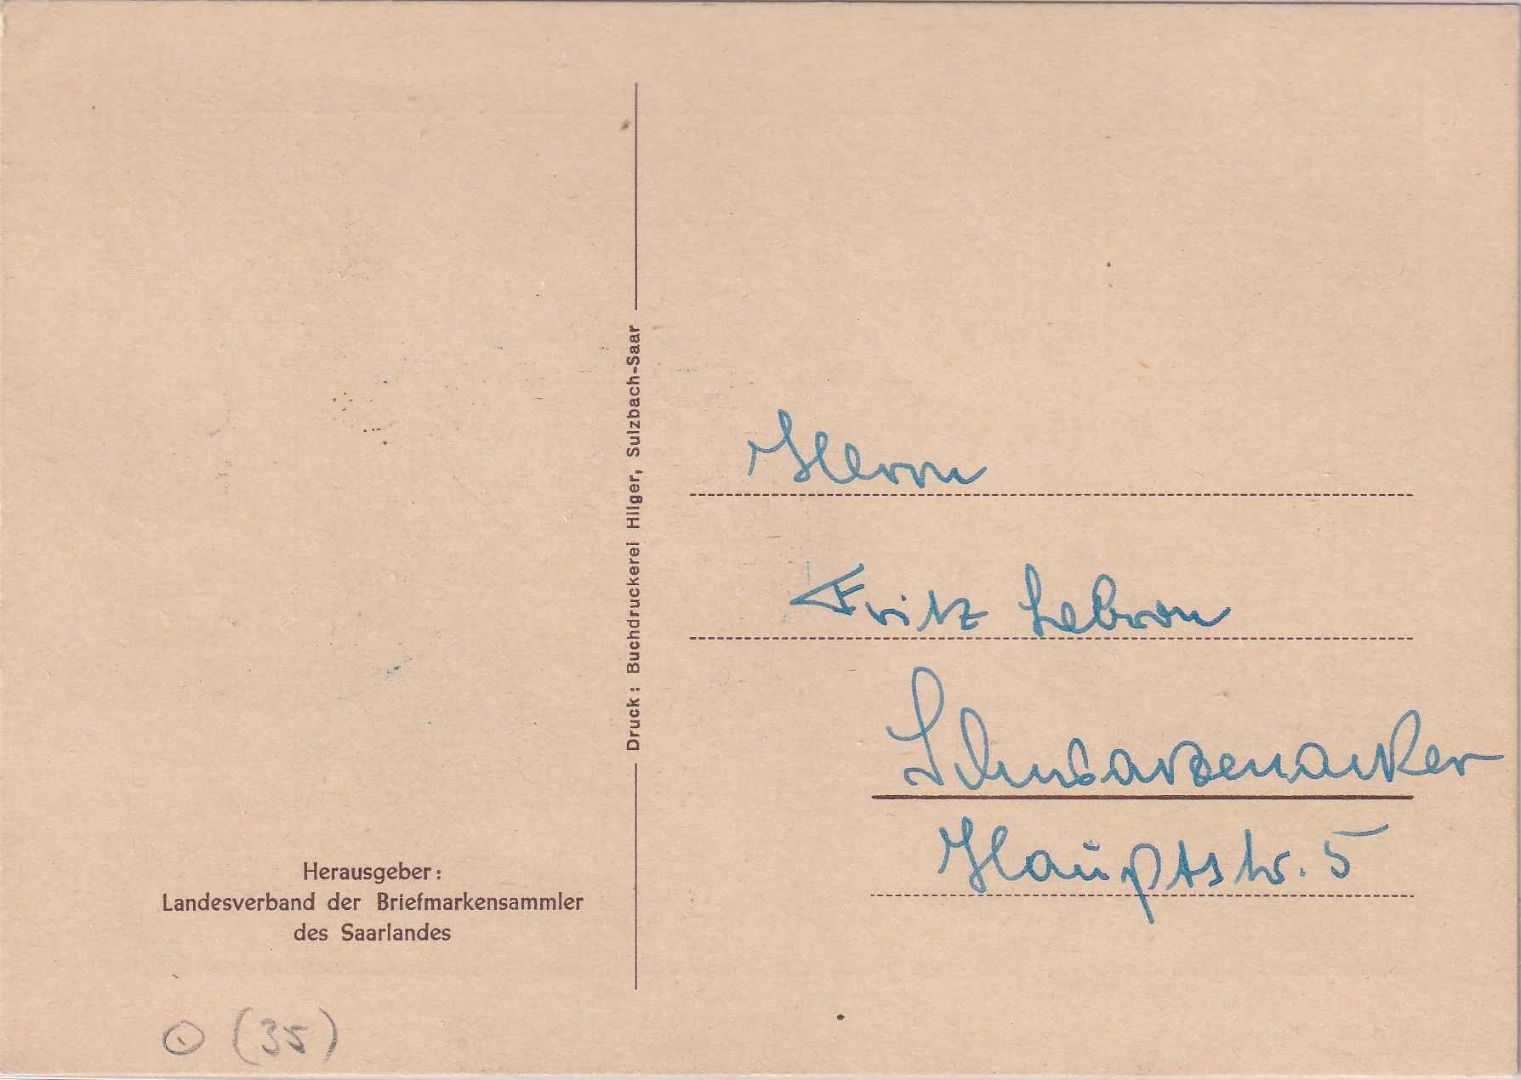 Herausgeber:
Landesverband der Briefmarkensammler
des Saarlandes
(35)
Druck: Buchdruckerei Hilger, Sulzbach-Saar
Herrn
Fritz Lebron
Schwarzenacker
Hauptstr. 5